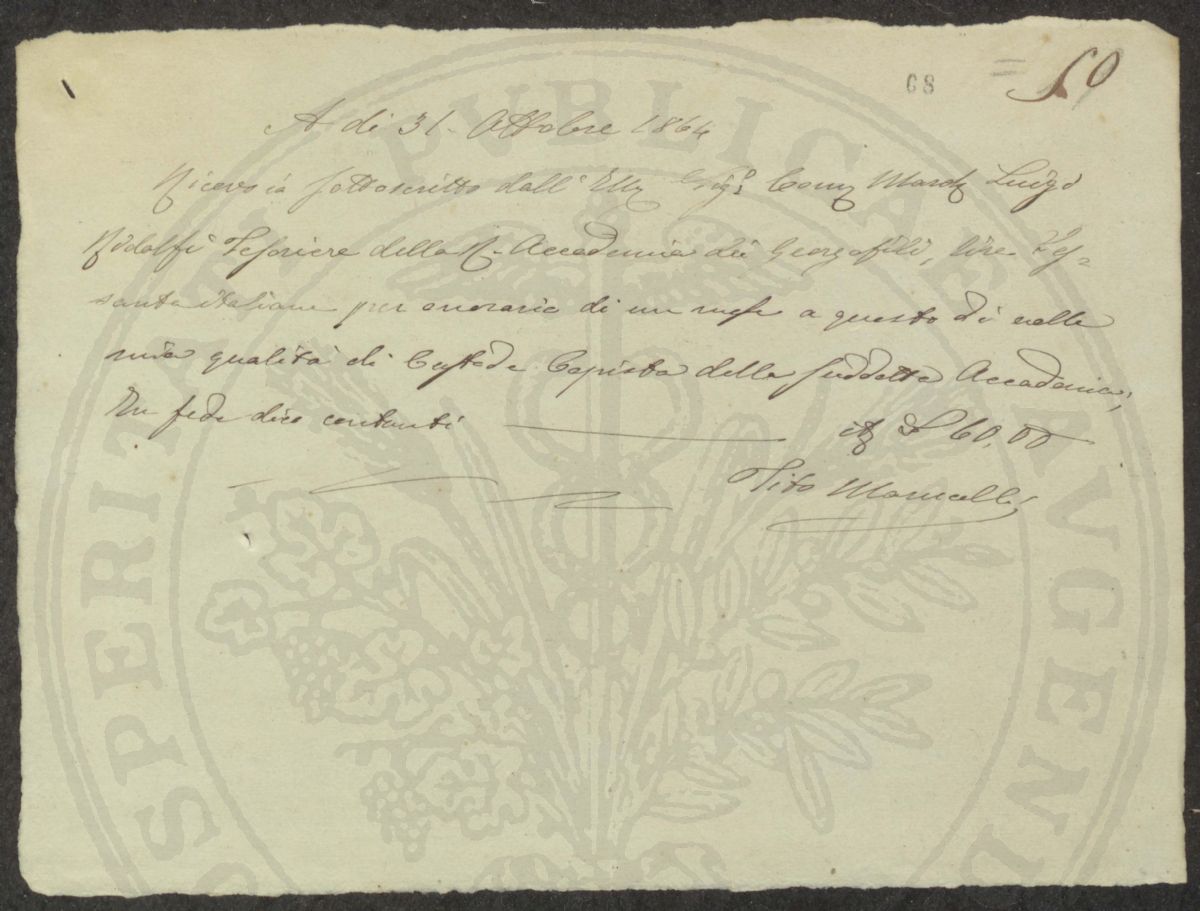 68
50
A dì 31. Ottobre 1864
Ricevo io sottoscritto dall' Ill. Sig.e Com. March. Luigi
Ridolfi Tesoriere della R. Accademia dei Georgofili, lire Ses=
santa italiane per onorario di un mese a questo dì nella
mia qualità di Custode Copista della suddetta Accademia;
In fede dico contanti £ 60,00
Tito Marucelli
PROSPERITATI PVBLICAE AVGENDAE